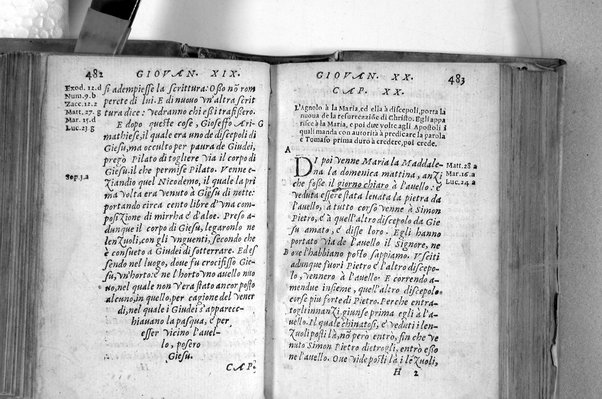 482 GIOVAN. XIX.
Exod. 12.d
Num. 9.b
Zacc. 12.2
Matt. 27.g
Mar. 15.d
Luc. 23 g
si adempiesse la scrittura: Osso nō rom
perete di lui. E di nuouo vn'altra scrit
tura dice: vedranno chi essi trafissero.
E dopo queste cose, Gioseffo Ari- G
mathiese, il quale era uno de discepoli di
Giesu, ma occulto per paura de Giudei,
pregò Pilato di togliere via il corpo di
Giesu, il che permise Pilato. Venne e-
Sup. 3.a
ziandio quel Nicodemo, il quale la pri
ma volta era venuto à Giesu di notte
portando circa cento libre d'vna com-
posizione di mirrha è d'aloe. Preso a-
dunque il corpo di Giesu, legaronlo ne
lenzuoli, con gli vnguenti, secondo che
è consueto a Giudei di sotterrare. Ed es
sendo nel luogo, doue fu crocifisso Gie-
su, vn'horto: è ne l'horto vno auello nuo
vo, nel quale non v'era stato ancor posto
alcuno, in quello, per cagione del vener
di, nel quale i Giudei s'apparecc-
chiauano la pasqua, è per
esser vicino l'auel-
lo, posero
Giesu.
CAP.
GIOVAN. XX. 483
CAP. XX.
L'Agnolo à la Maria, ed ella à discepoli, porta la
nuoua de la resurrezzione di Christo. Egli appa
risce à la Maria, e poi due volte agli Apostoli i
quali manda con autorità à predicare la parola
e Tomaso prima duro à credere, poi crede.
A
DI poi venne Maria la Maddale-
na la domenica mattina, anzi
che fosse il giorno chiaro à l'auello: è
veduta essere stata leuata la pietra da
l'auello, à tutto corso venne à Simon
Pietro, è à quell'altro discepolo da Gie
su amato, è disse loro. Egli hanno
portato via de l'auello il Signore, ne
B oue l'habbiano posto sappiamo. Vsciti
adunque fuori Pietro è l'altro discepo-
lo, vennero à l'auello. E correndo a-
mendue insieme, quell'altro discepolo
corse piu forte di Pietro. Perche entra-
togli innanzi giunse prima egli à l'a-
uello. Il quale chinatosi, è veduti i len-
zuoli posti là, nō però entrò, fin che ve
nuto Simon Pietro dietrogli, entrò esso
ne l'auello. Oue vide posti là i lēzuoli,
H 2
Matt. 28 a
Mar. 16.a
Luc. 24 a